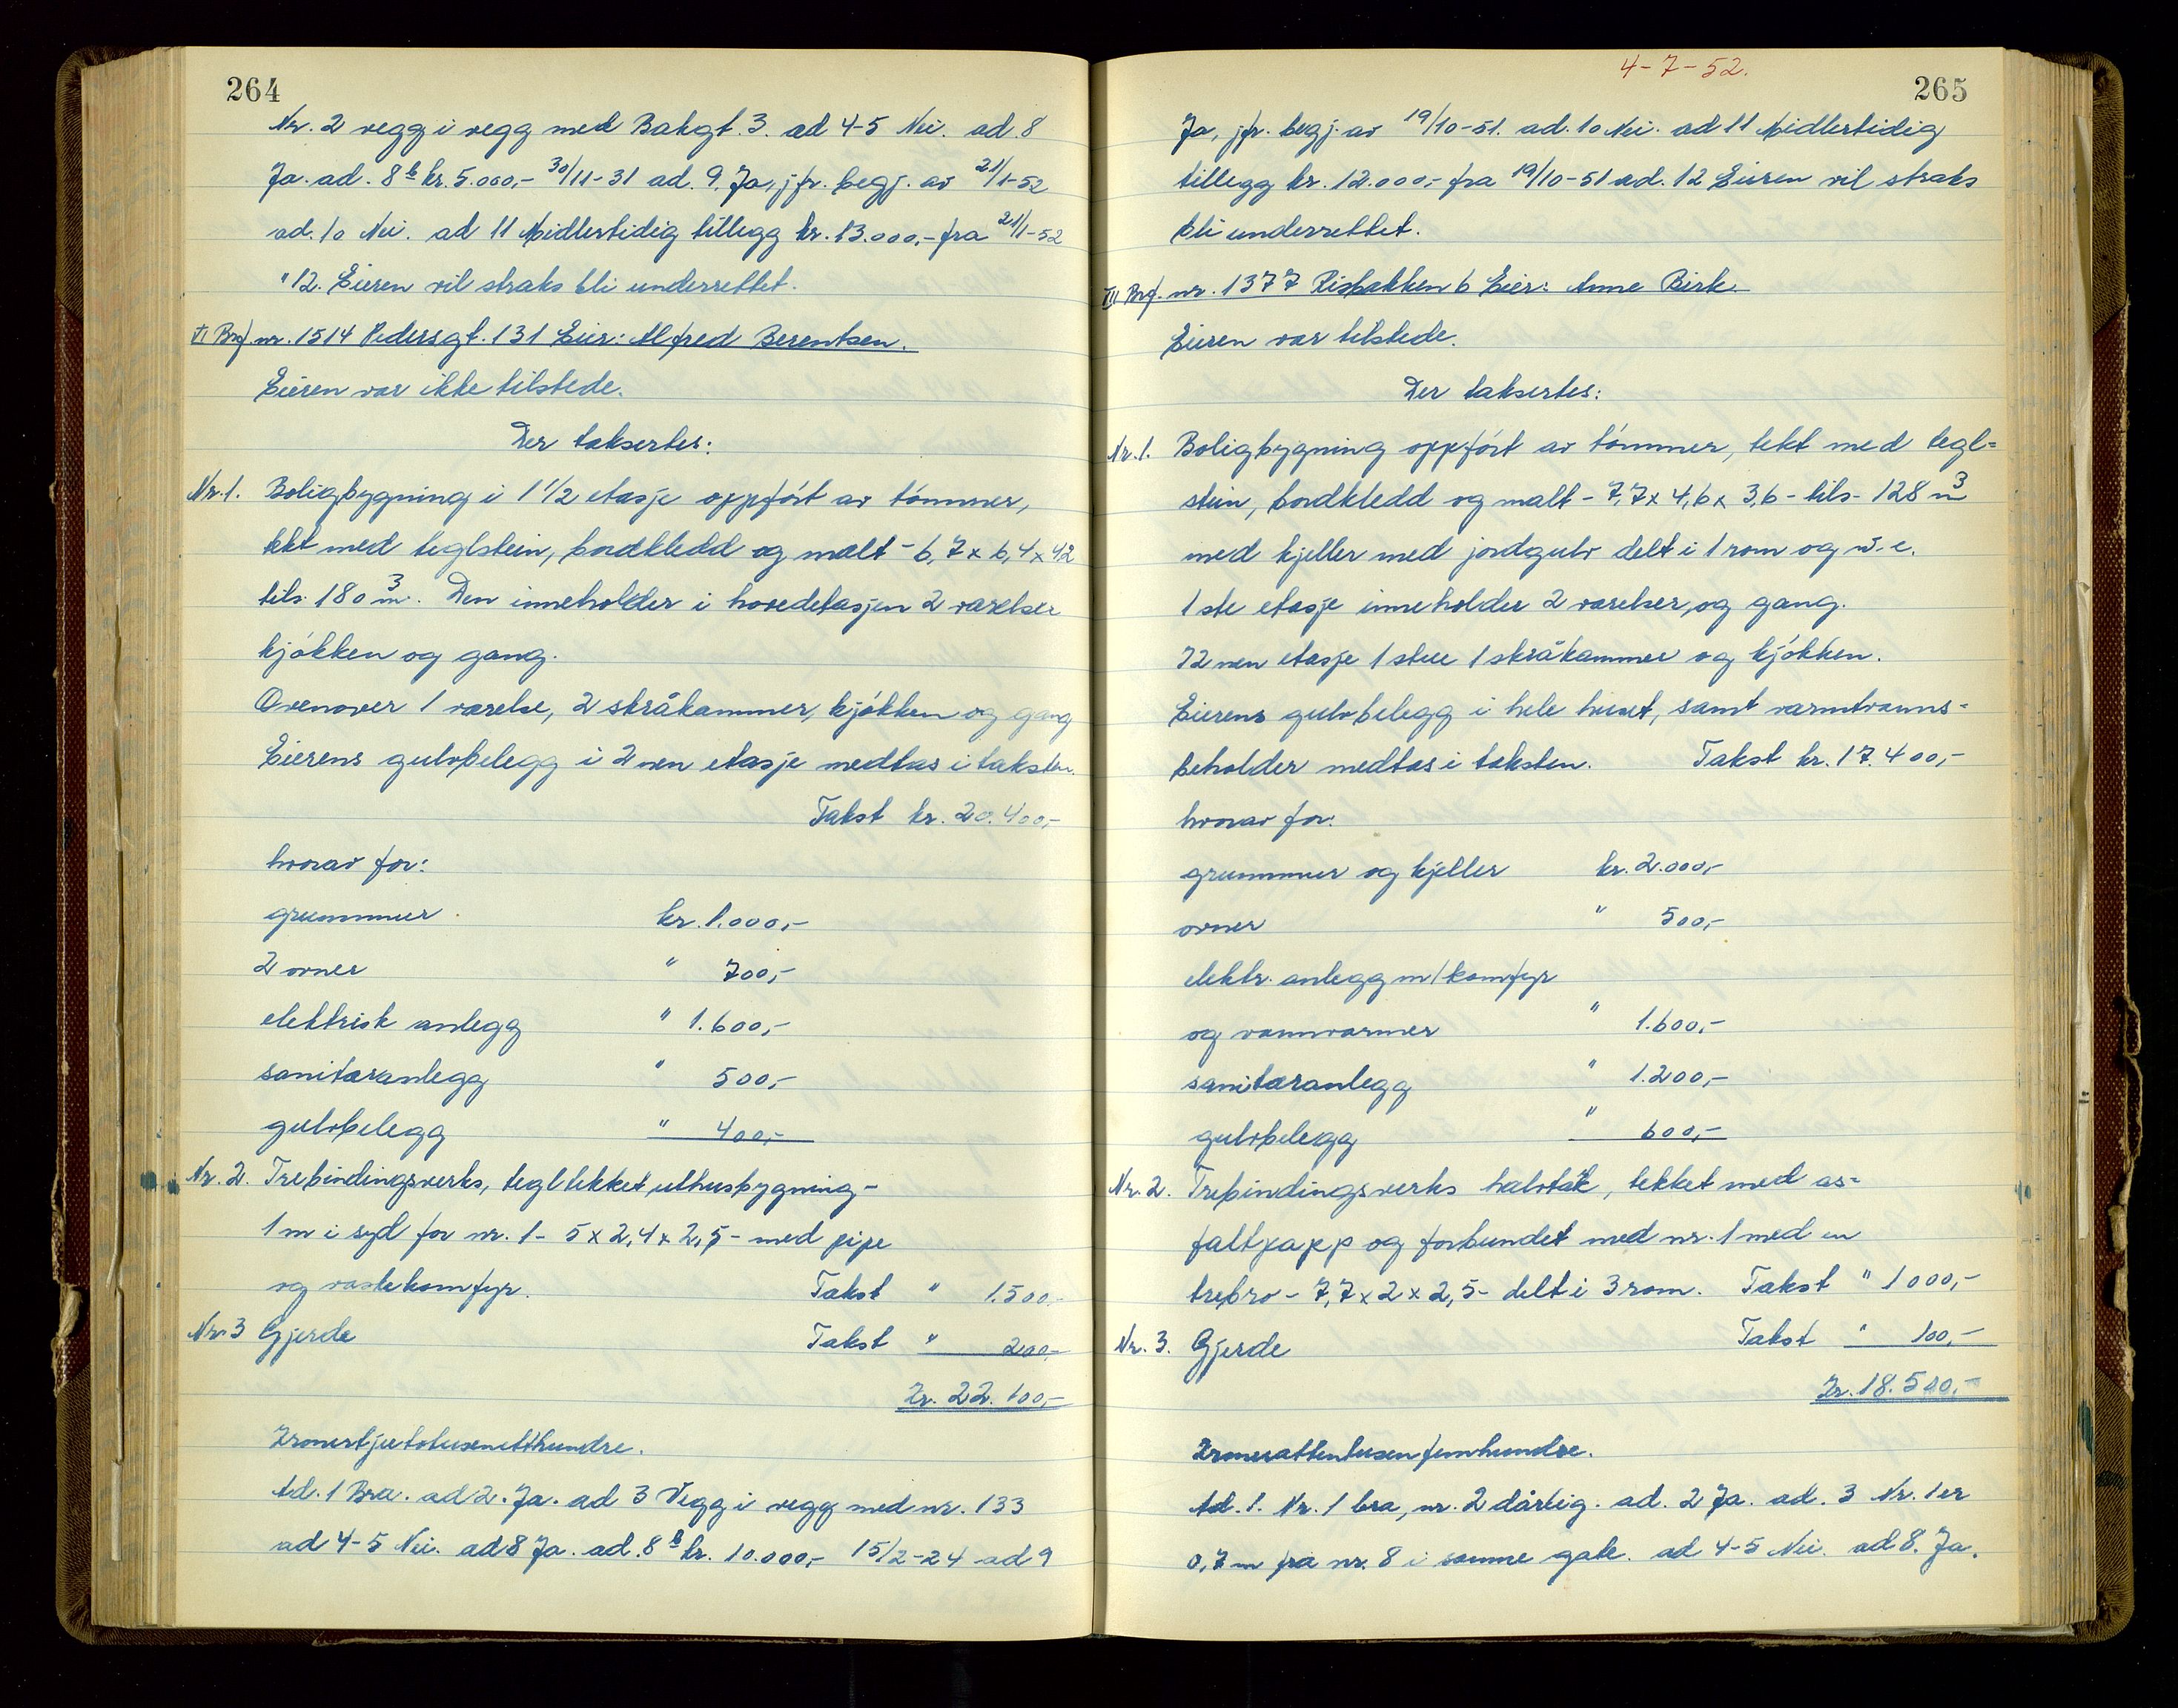 264
Nr. 2 vegg i vegg med Bakgt. 3. ad 4-5 Nei. ad. 8
Ja. ad. 8 b kr. 5.000,- 30/11-31 ad. 9. Ja, jfr. begj. av 21/1-52
ad. 10 Nei. ad 11 Midlertidig tillegg kr. 13.000,- fra 21/1-52
" 12. Eieren vil straks bli underrettet.
VI Brf. nr. 1514 Pedersgt. 131 Eier: Alfred Berentsen.
Eieren var ikke tilstede.
Der taksertes:
Nr. 1. Boligbygning i 1 1/2 etasje oppfört av tömmer,
tekt med teglstein, bordkledd og malt - 6,7 x 6,4 x 4,2
tils. 180 m3. Den inneholder i hovedetasjen 2 værelser
kjökken og gang.
Ovenover 1 værelse, 2 skråkammer, kjökken og gang
Eierens gulvbelegg i 2nen etasje medtas i taksten.
Takst kr. 20.400,-
hvorav for:
grunnmur kr. 1.000,-
2 ovner " 700,-
elektrisk anlegg " 1.600,-
sanitæranlegg " 500,-
gulvbelegg " 400,-
Nr. 2. Trebindingsverks, tegltekket uthusbygning -
1 m i syd for nr. 1 - 5 x 2,4 x 2,5 - med pipe
og vaskekomfyr. Takst " 1.500,-
Nr. 3 Gjerde Takst " 200,-
Kr. 22.100,-
Kronertjuetotusenetthundre.
Ad. 1 Bra. ad 2. Ja. ad 3 Vegg i vegg med nr. 133
ad 4-5 Nei. ad 8 Ja. ad. 8 b kr. 10.000,- 15/2-24 ad 9
4-7-52.
265
Ja, jfr. begj. av 19/10-51. ad. 10 Nei. ad 11 Midlertidig
tillegg kr. 12.000,- fra 19/10-51 ad. 12 Eieren vil straks
bli underrettet.
VII Brf. nr. 1377 Risbakken 6 Eier: Anne Birk.
Eieren var tilstede.
Der taksertes:
Nr. 1. Boligbygning oppfört av tömmer, tekt med tegl=
stein, bordkledd og malt - 7,7 x 4,6 x 3,6 - tils - 128 m3
med kjeller med jordgulv delt i 1 rom og w.c.
1ste etasje inneholder 2 værelser, og gang.
2nen etasje 1 stue 1 skråkammer og kjökken.
Eierens gulvbelegg i hele huset, samt varmtvanns=
beholder medtas i taksten. Takst kr. 17.400,-
hvorav for:
grunnmur og kjeller kr. 2.000,-
ovner " 500,-
elektr. anlegg m/komfyr
og vannvarmer " 1.600,-
sanitæranlegg " 1.200,-
gulvbelegg " 600,-
Nr. 2. Trebindingsverks halvtak, tekket med as=
faltpapp og forbundet med nr. 1 med en
trebro - 7,7 x 2 x 2,5 - delt i 3 rom. Takst " 1000,-
Nr. 3. Gjerde Takst " 100,-
Kr. 18.500,-
Kronerattentusenfemhundre.
Ad. 1. Nr. 1 bra, nr. 2 dårlig. ad. 2 Ja. ad. 3 Nr. 1 er
0,7 m fra nr. 8 i samme gate. ad 4-5 Nei. ad 8. Ja.